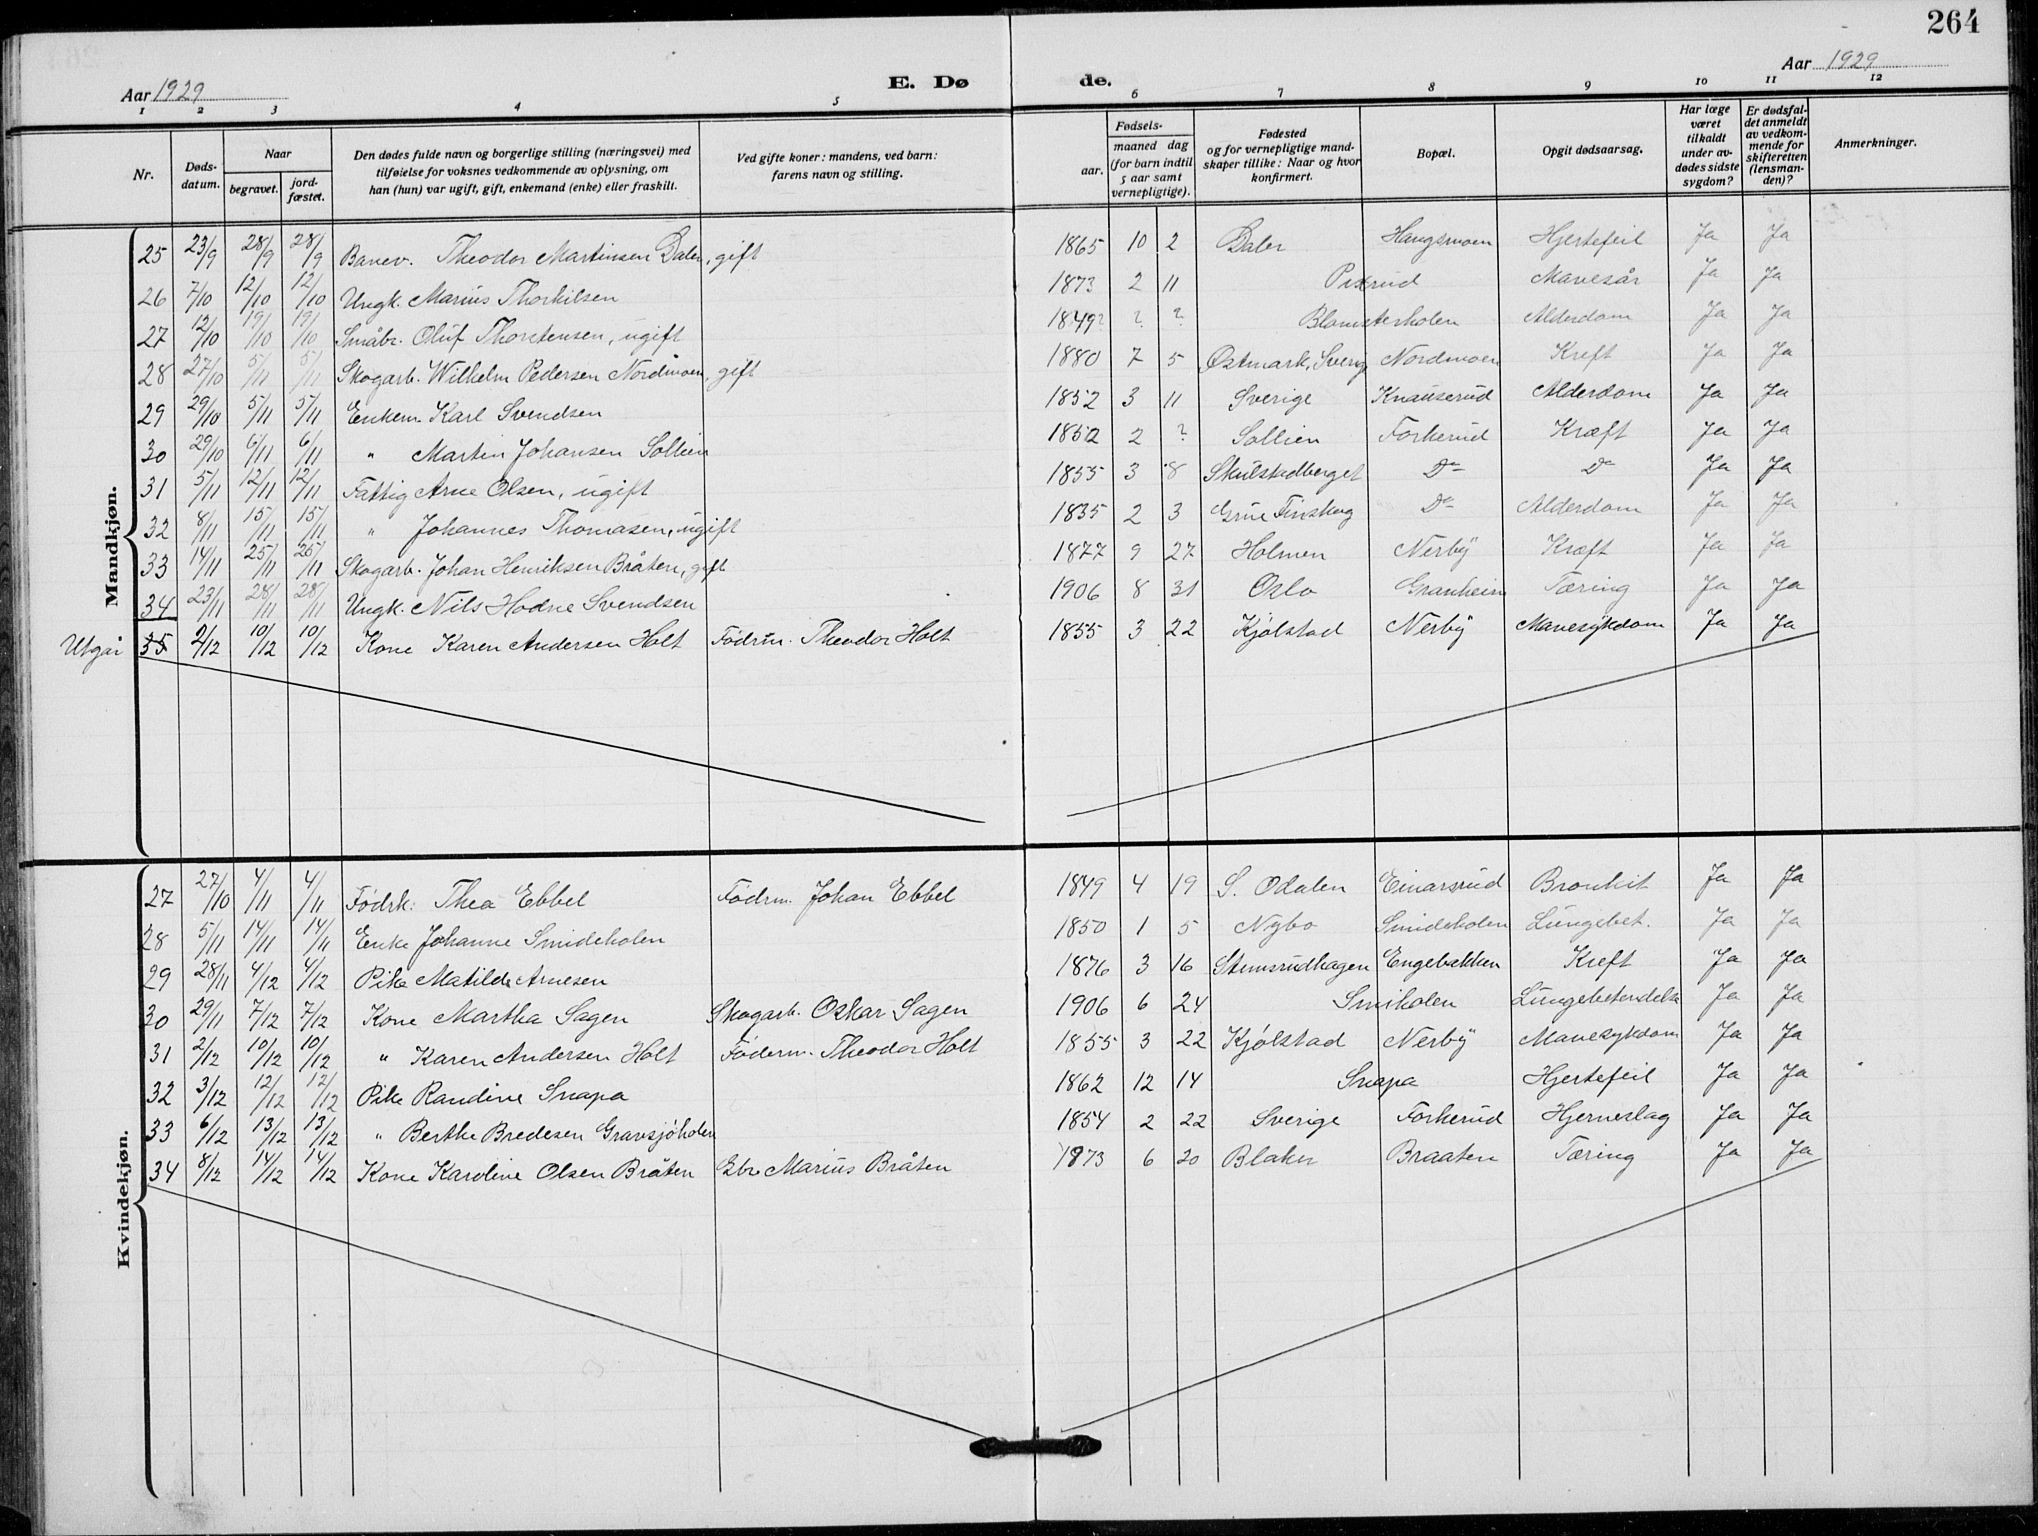 264
Aar 1929
E. Dø
de.
Aar 1929
1 2 3 4 5 6 7 8 9 10 11 12
Nr.
Døds-
datum.
Naar
begravet.
jord-
fæstet.
Den dødes fulde navn og borgerlige stilling (næringsvei) med
tilføielse for voksnes vedkommende av oplysning, om
han (hun) var ugift, gift, enkemand (enke) eller fraskilt.
Ved gifte koner: mandens, ved barn:
farens navn og stilling.
Fødsels-
aar.
maaned dag
(for barn indtil
5 aar samt
vernepligtige).
Fødested
og for vernepligtige mand-
skaper tillike: Naar og hvor
konfirmert.
Bopæl.
Opgit dødsaarsag.
Har læge
været
tilkaldt
under av-
dødes sidste
sygdom?
Er dødsfal-
det anmeldt
av vedkom-
mende for
skifteretten
(lensman-
den)?
Anmerkninger.
Mandkjøn.
25 23/9 28/9 28/9 Banev. Theodor Martinsen Daler, gift 1865 10 2 Daler Haugsmoen Hjertefeil Ja Ja
26 7/10 12/10 12/10 Ungk. Marius Thorkilsen 1873 2 11 Pixrud Mavesår Ja Ja
27 12/10 19/10 19/10 Småbr. Oluf Thorstensen, ugift 1849? ? ? Blomsterholen Alderdom Ja Ja
28 27/10 5/11 5/11 Skogarb. Wilhelm Pedersen Nordmoen, gift 1880 7 5 Østmark, Sverig Nordmoen Kreft Ja Ja
29 29/10 5/11 5/11 Enkem. Karl Svendsen 1852 3 11 Sverige Knauserud Alderdom Ja Ja
30 29/10 6/11 6/11 " Martin Johansen Sollien 1852 2 ? Sollien Forkerud Kræft Ja Ja
31 5/11 12/11 12/11 Fattig Arne Olsen, ugift 1855 3 8 Skulstadberget Do Do Ja Ja
32 8/11 15/11 15/11 " Johannes Thomasen, ugift 1835 2 3 Grue Finskog Do Alderdom Ja Ja
33 14/11 25/11 25/11 Skogarb. Johan Henriksen Bråten, gift 1877 9 27 Holmen Nerby Kræft Ja Ja
34 23/11 28/11 28/11 Ungk. Nils Hodne Svendsen 1906 8 31 Oslo Granheim Tæring Ja Ja
Utgår 35 2/12 10/12 10/12 Kone Karen Andersen Holt Fødrm. Theodor Holt 1855 3 22 Kjølstad Nerby Mavesykdom Ja Ja
Kvindekjøn.
27 27/10 4/11 4/11 Fødrk. Thea Ebbel Fødrm. Johan Ebbel 1849 4 19 S. Odalen Einarsrud Bronkit Ja Ja
28 5/11 14/11 14/11 Enke Johanne Smideholen 1850 1 5 Nybo Smideholen Lungebet. Ja Ja
29 28/11 4/12 4/12 Pike Matilde Arnesen 1876 3 16 Stemsrudhagen Engebakken Kreft Ja Ja
30 29/11 7/12 7/12 Kone Martha Sagen Skogarb. Oskar Sagen 1906 6 24 Smiholen Lungebetendelse Ja Ja
31 2/12 10/12 10/12 " Karen Andersen Holt Føderm. Theodor Holt 1855 3 22 Kjølstad Nerby Mavesykdom Ja Ja
32 3/12 12/12 12/12 Pike Randine Snapa 1862 12 14 Snapa Hjertefeil Ja Ja
33 6/12 13/12 13/12 " Berthe Bredesen Gravsjøholen 1854 2 22 Sverige Forkerud Hjerneslag Ja Ja
34 8/12 14/12 14/12 Kone Karoline Olsen Bråten Gbr Marius Bråten 1873 6 20 Blaker Braaten Tæring Ja Ja